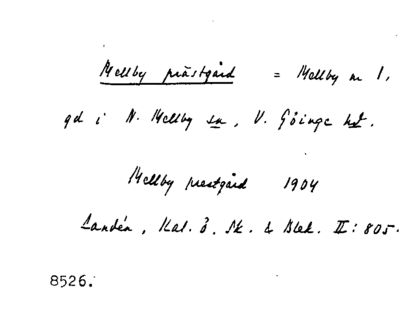 Mellby prästgård = Mellby nr 1,
gd i N. Mellby sn, V. Göinge hd.
Mellby prestgård 1904
Landén, Kal. ö. Sk. & Blek. II: 805.
8526.